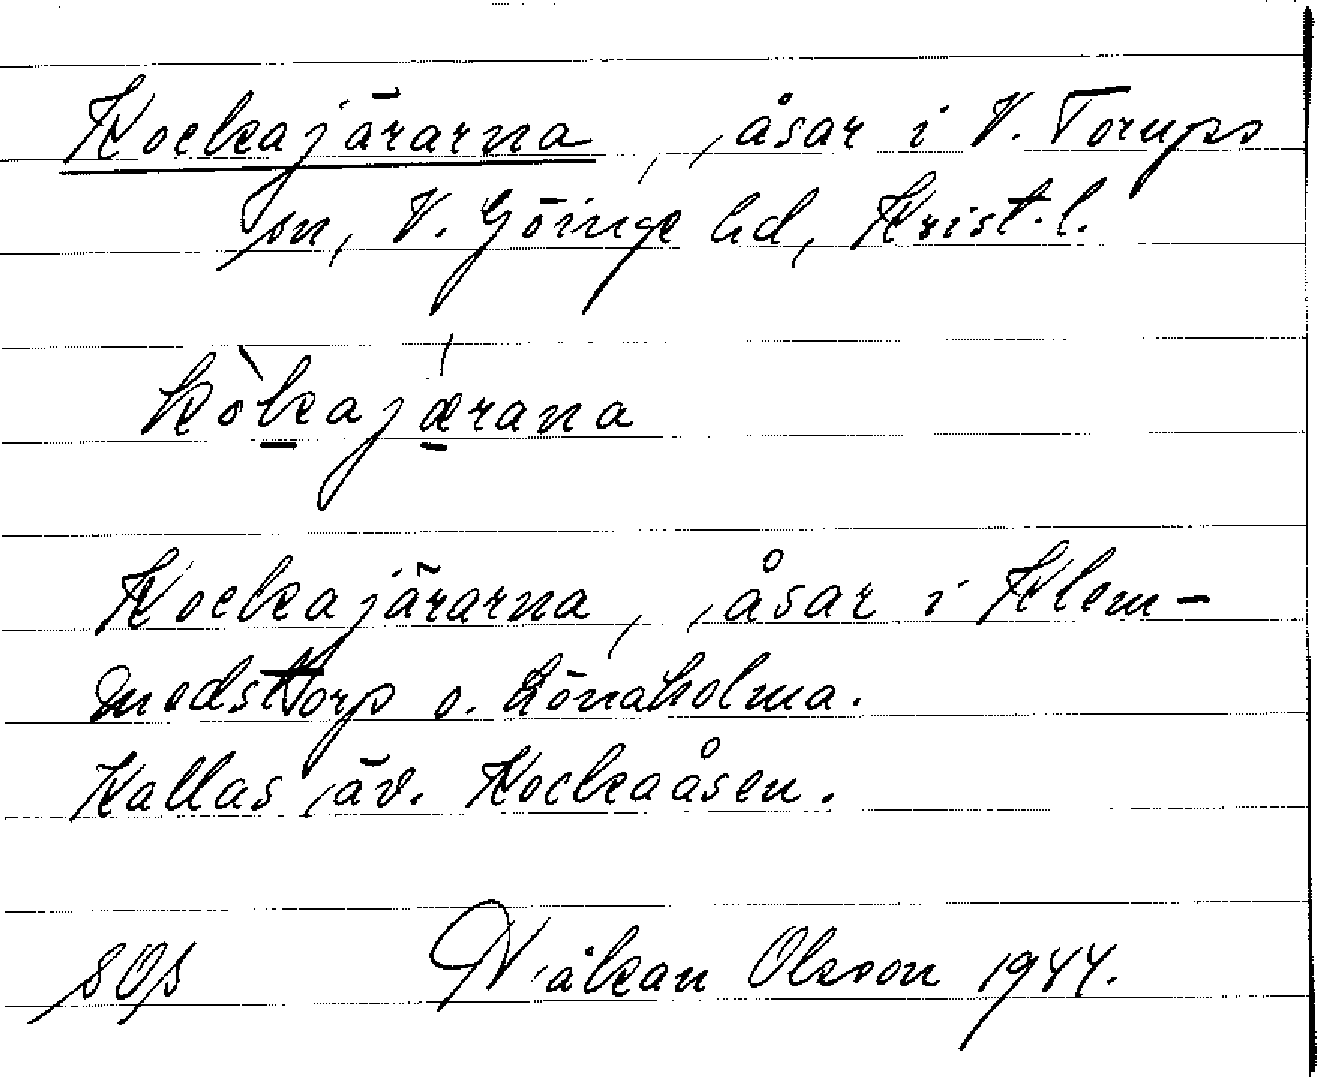 Kockajärarna, åsar i V. Torups
sn, V. Göinge hd, Krist. l.
kòkajǽrana
Kockajärarna, åsar i Klem-
medstorp o. Lönaholma.
Kallas äv. Kockaåsen.
Håkan Olsson 1944.